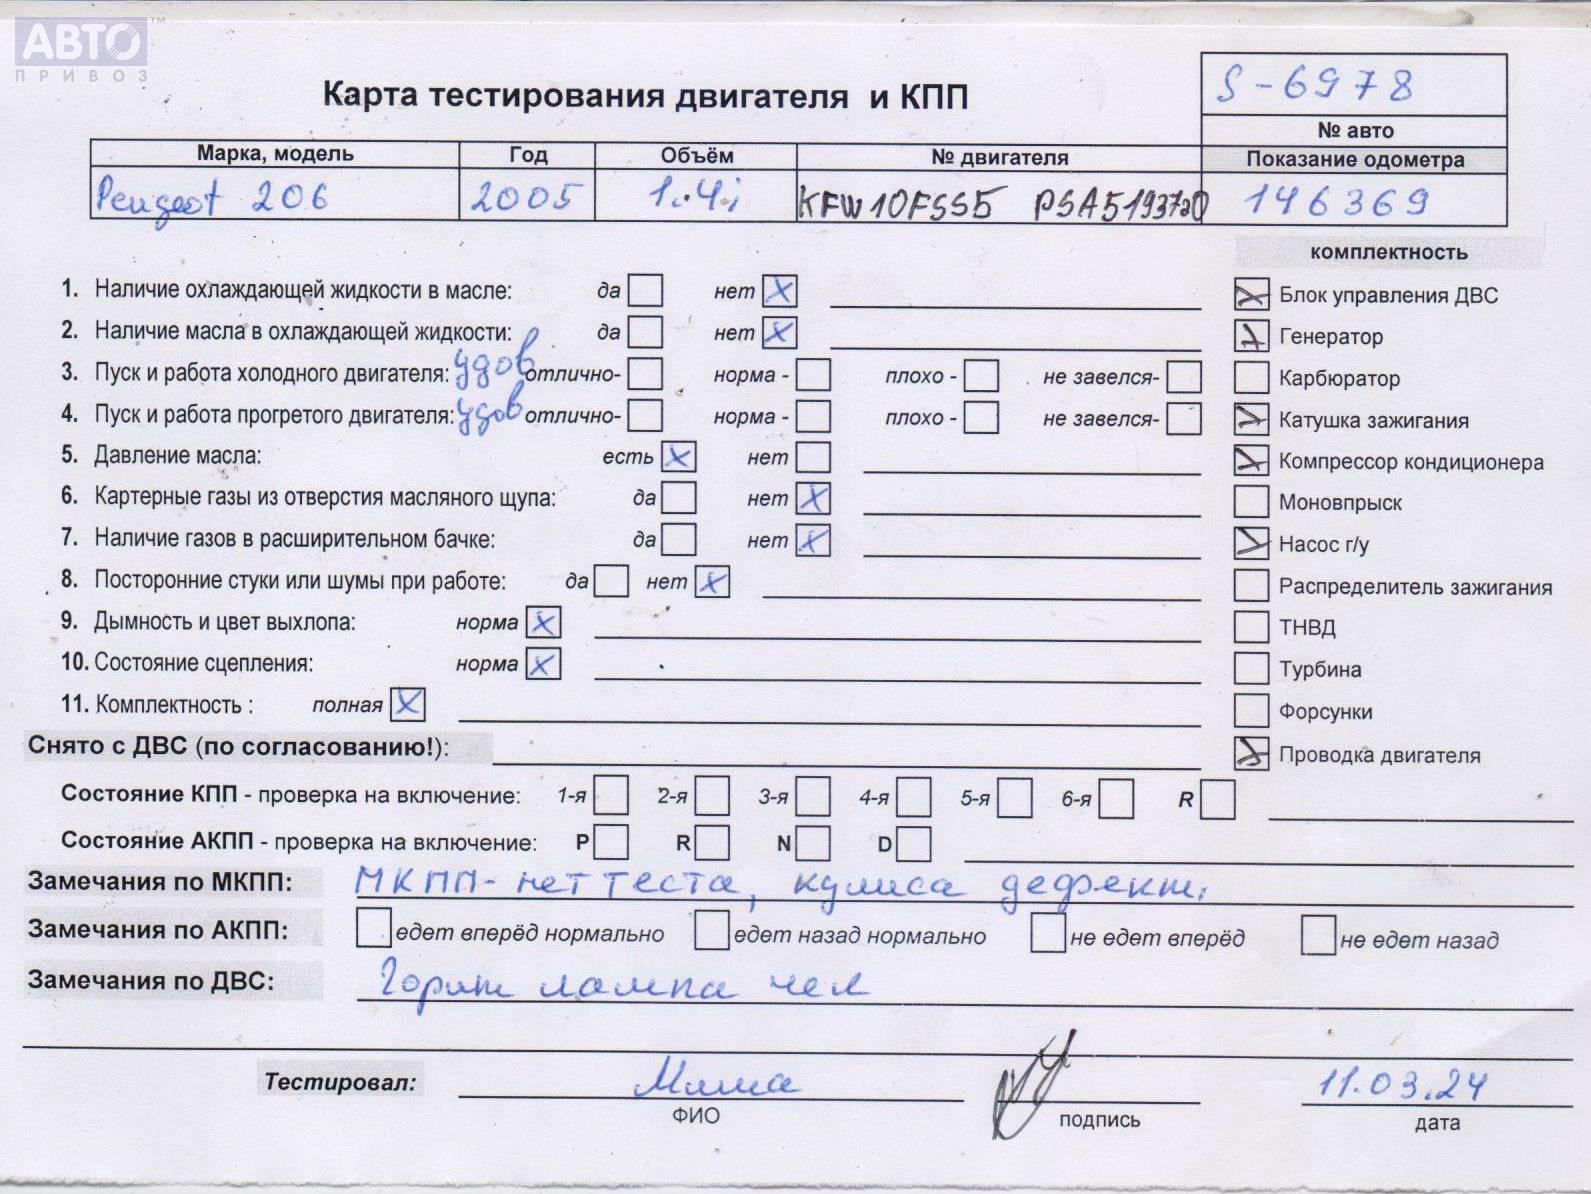 АВТО™
ПРИВОЗ
S-6978
Карта тестирования двигателя и КПП
№ авто
Марка, модель Год Объём № двигателя Показание одометра
Peugeot 206 2005 1.4i KFW10FSS5 PSA5193720 146369
комплектность
1. Наличие охлаждающей жидкости в масле: да нет X
Блок управления ДВС
2. Наличие масла в охлаждающей жидкости: да нет X
Генератор
3. Пуск и работа холодного двигателя: удов отлично- норма - плохо - не завелся-
Карбюратор
4. Пуск и работа прогретого двигателя: удов отлично- норма - плохо - не завелся-
Катушка зажигания
5. Давление масла: есть X нет
Компрессор кондиционера
6. Картерные газы из отверстия масляного щупа: да нет X
Моновпрыск
7. Наличие газов в расширительном бачке: да нет X
Насос г/у
8. Посторонние стуки или шумы при работе: да нет X
Распределитель зажигания
9. Дымность и цвет выхлопа: норма X
ТНВД
10. Состояние сцепления: норма X
Турбина
11. Комплектность : полная X
Форсунки
Снято с ДВС (по согласованию!):
Проводка двигателя
Состояние КПП - проверка на включение: 1-я 2-я 3-я 4-я 5-я 6-я R
Состояние АКПП - проверка на включение: P R N D
Замечания по МКПП: МКПП- нет теста, кулиса дефект.
Замечания по АКПП: едет вперёд нормально едет назад нормально не едет вперёд не едет назад
Замечания по ДВС: Горит лампа чек
Тестировал: Миша 11.03.24
ФИО подпись дата